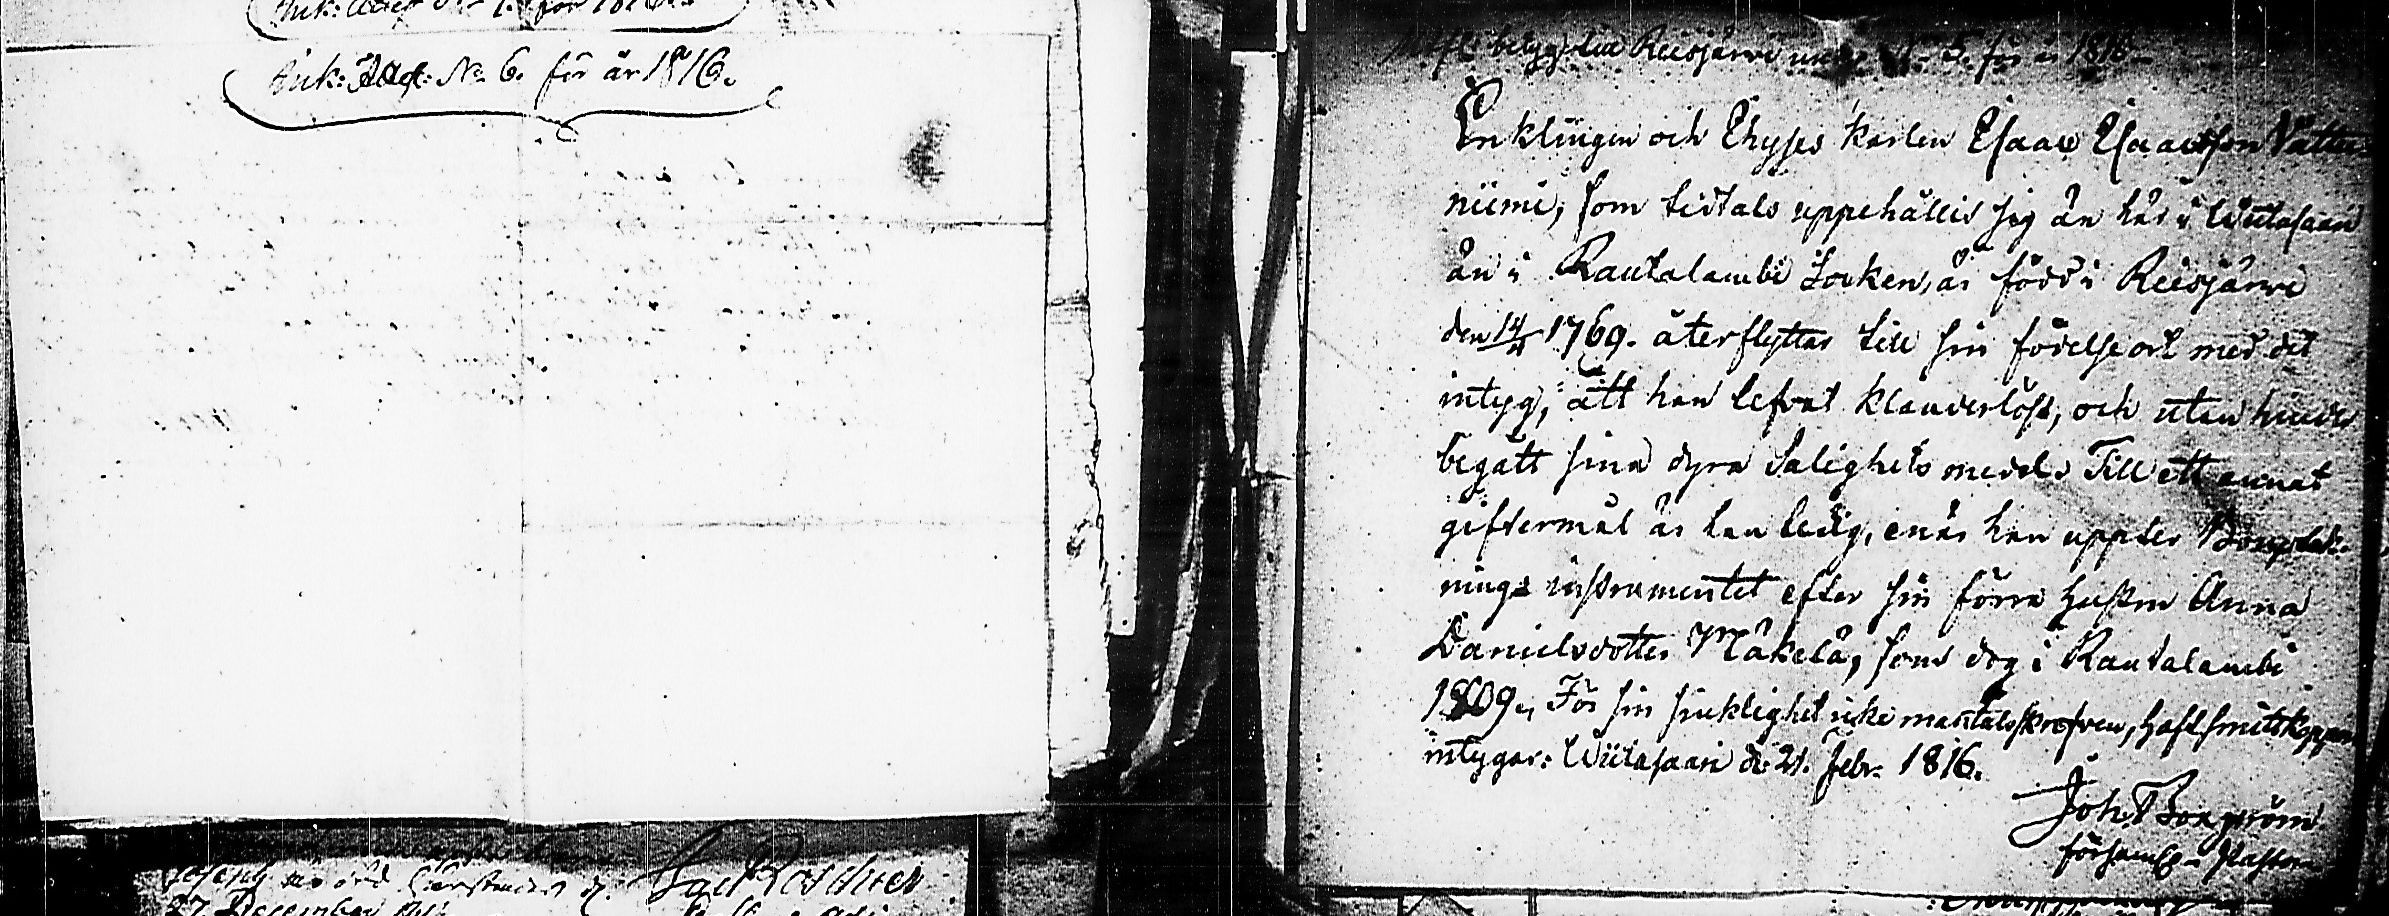 Ank: Attest N: 6. för år 1816.
27 December
betyg till Reisjärvi under N: 5. för år 1816
Enklingen och Thyses karlen Esaac Esaacsson Vatte-
niemi, som tidtals uppehållit sig än här i Wiitasaari
än i Rautalambi Socken, är född i Reisjärvi
den 14/4 1769. återflyttar till sin födelse ort med det
intyg, att han lefvat klanderlöst, och utan hinder
begått sina dyra Salighets medel. Till ett annat
giftermål är han ledig, enär han uppter Bouptek-
nings instrumentet efter sin förra hustru Anna
Danielsdotter Mäkelä, som dog i Rautalambi
1809. För sin sjuklighet icke mantalskrefven, haft smittkoppor
intygar: Wiitasaari d: 21. Febr. 1816.
Joh. Borgström
församl: Pastor